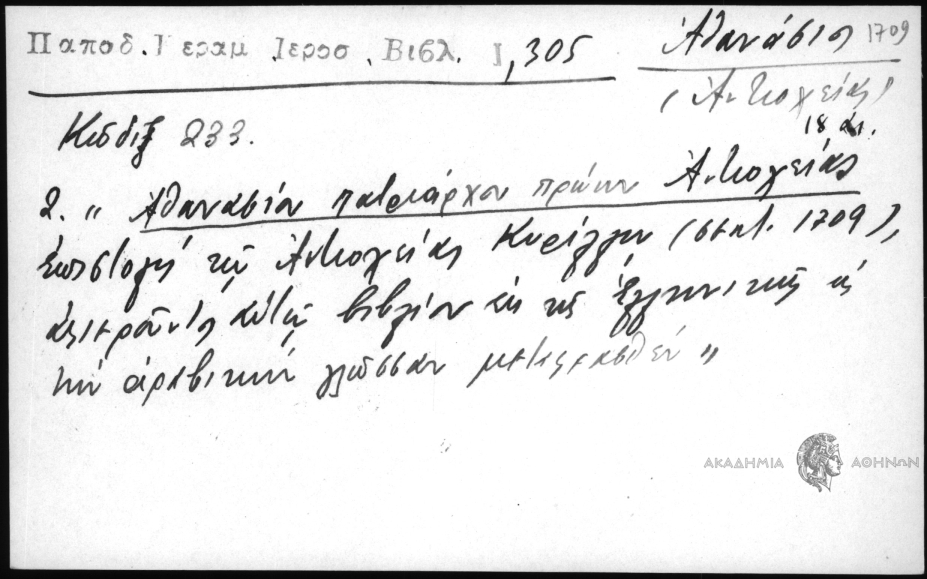 Παπαδ. Κεραμ. Ιερος. Βιβλ. Ι, 305
Ἀθανάσιος 1709
(Ἀντιοχείας)
18 αι.
Κώδιξ 233.
2. " Ἀθανασίου πατριάρχου πρώην Ἀντιοχείας
ἐπιστολὴ τῷ Ἀντιοχείας Κυρίλλῳ (σεπτ. 1709),
ἀφιεροῦντος αὐτῷ βιβλίον ἐκ τῆς ἑλληνικῆς εἰς
τὴν ἀραβικὴν γλῶσσαν μεταφρασθέν "
ΑΚΑΔΗΜΙΑ ΑΘΗΝΩΝ